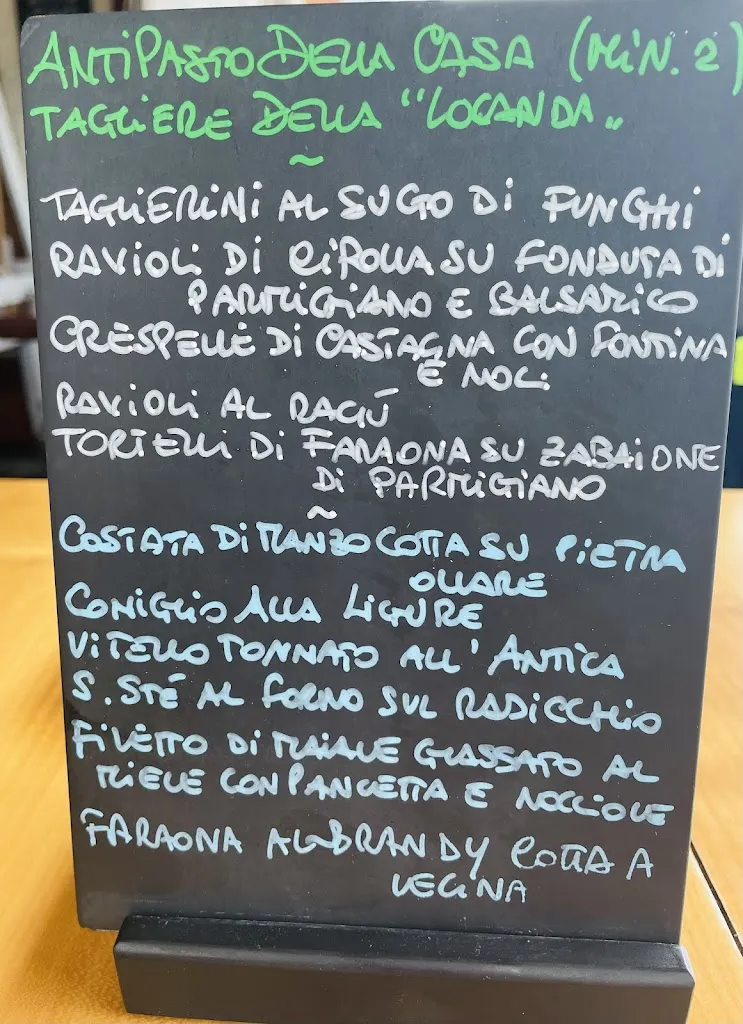 ANTIPASTO DELLA CASA (MIN. 2)
TAGLIERE DELLA "LOCANDA"
~
TAGLIERINI AL SUGO DI FUNGHI
RAVIOLI DI CIPOLLA SU FONDUTA DI
PARMIGIANO E BALSAMICO
CRESPELLE DI CASTAGNA CON FONTINA
E NOCI
RAVIOLI AL RAGÚ
TORTELLI DI FARAONA SU ZABAIONE
DI PARMIGIANO
~
COSTATA DI MANZO COTTA SU PIETRA
OLLARE
CONIGLIO ALLA LIGURE
VITELLO TONNATO ALL'ANTICA
S. STÉ AL FORNO SUL RADICCHIO
FILETTO DI MAIALE GLASSATO AL
MIELE CON PANCETTA E NOCCIOLE
FARAONA AL BRANDY COTTA A
LEGNA